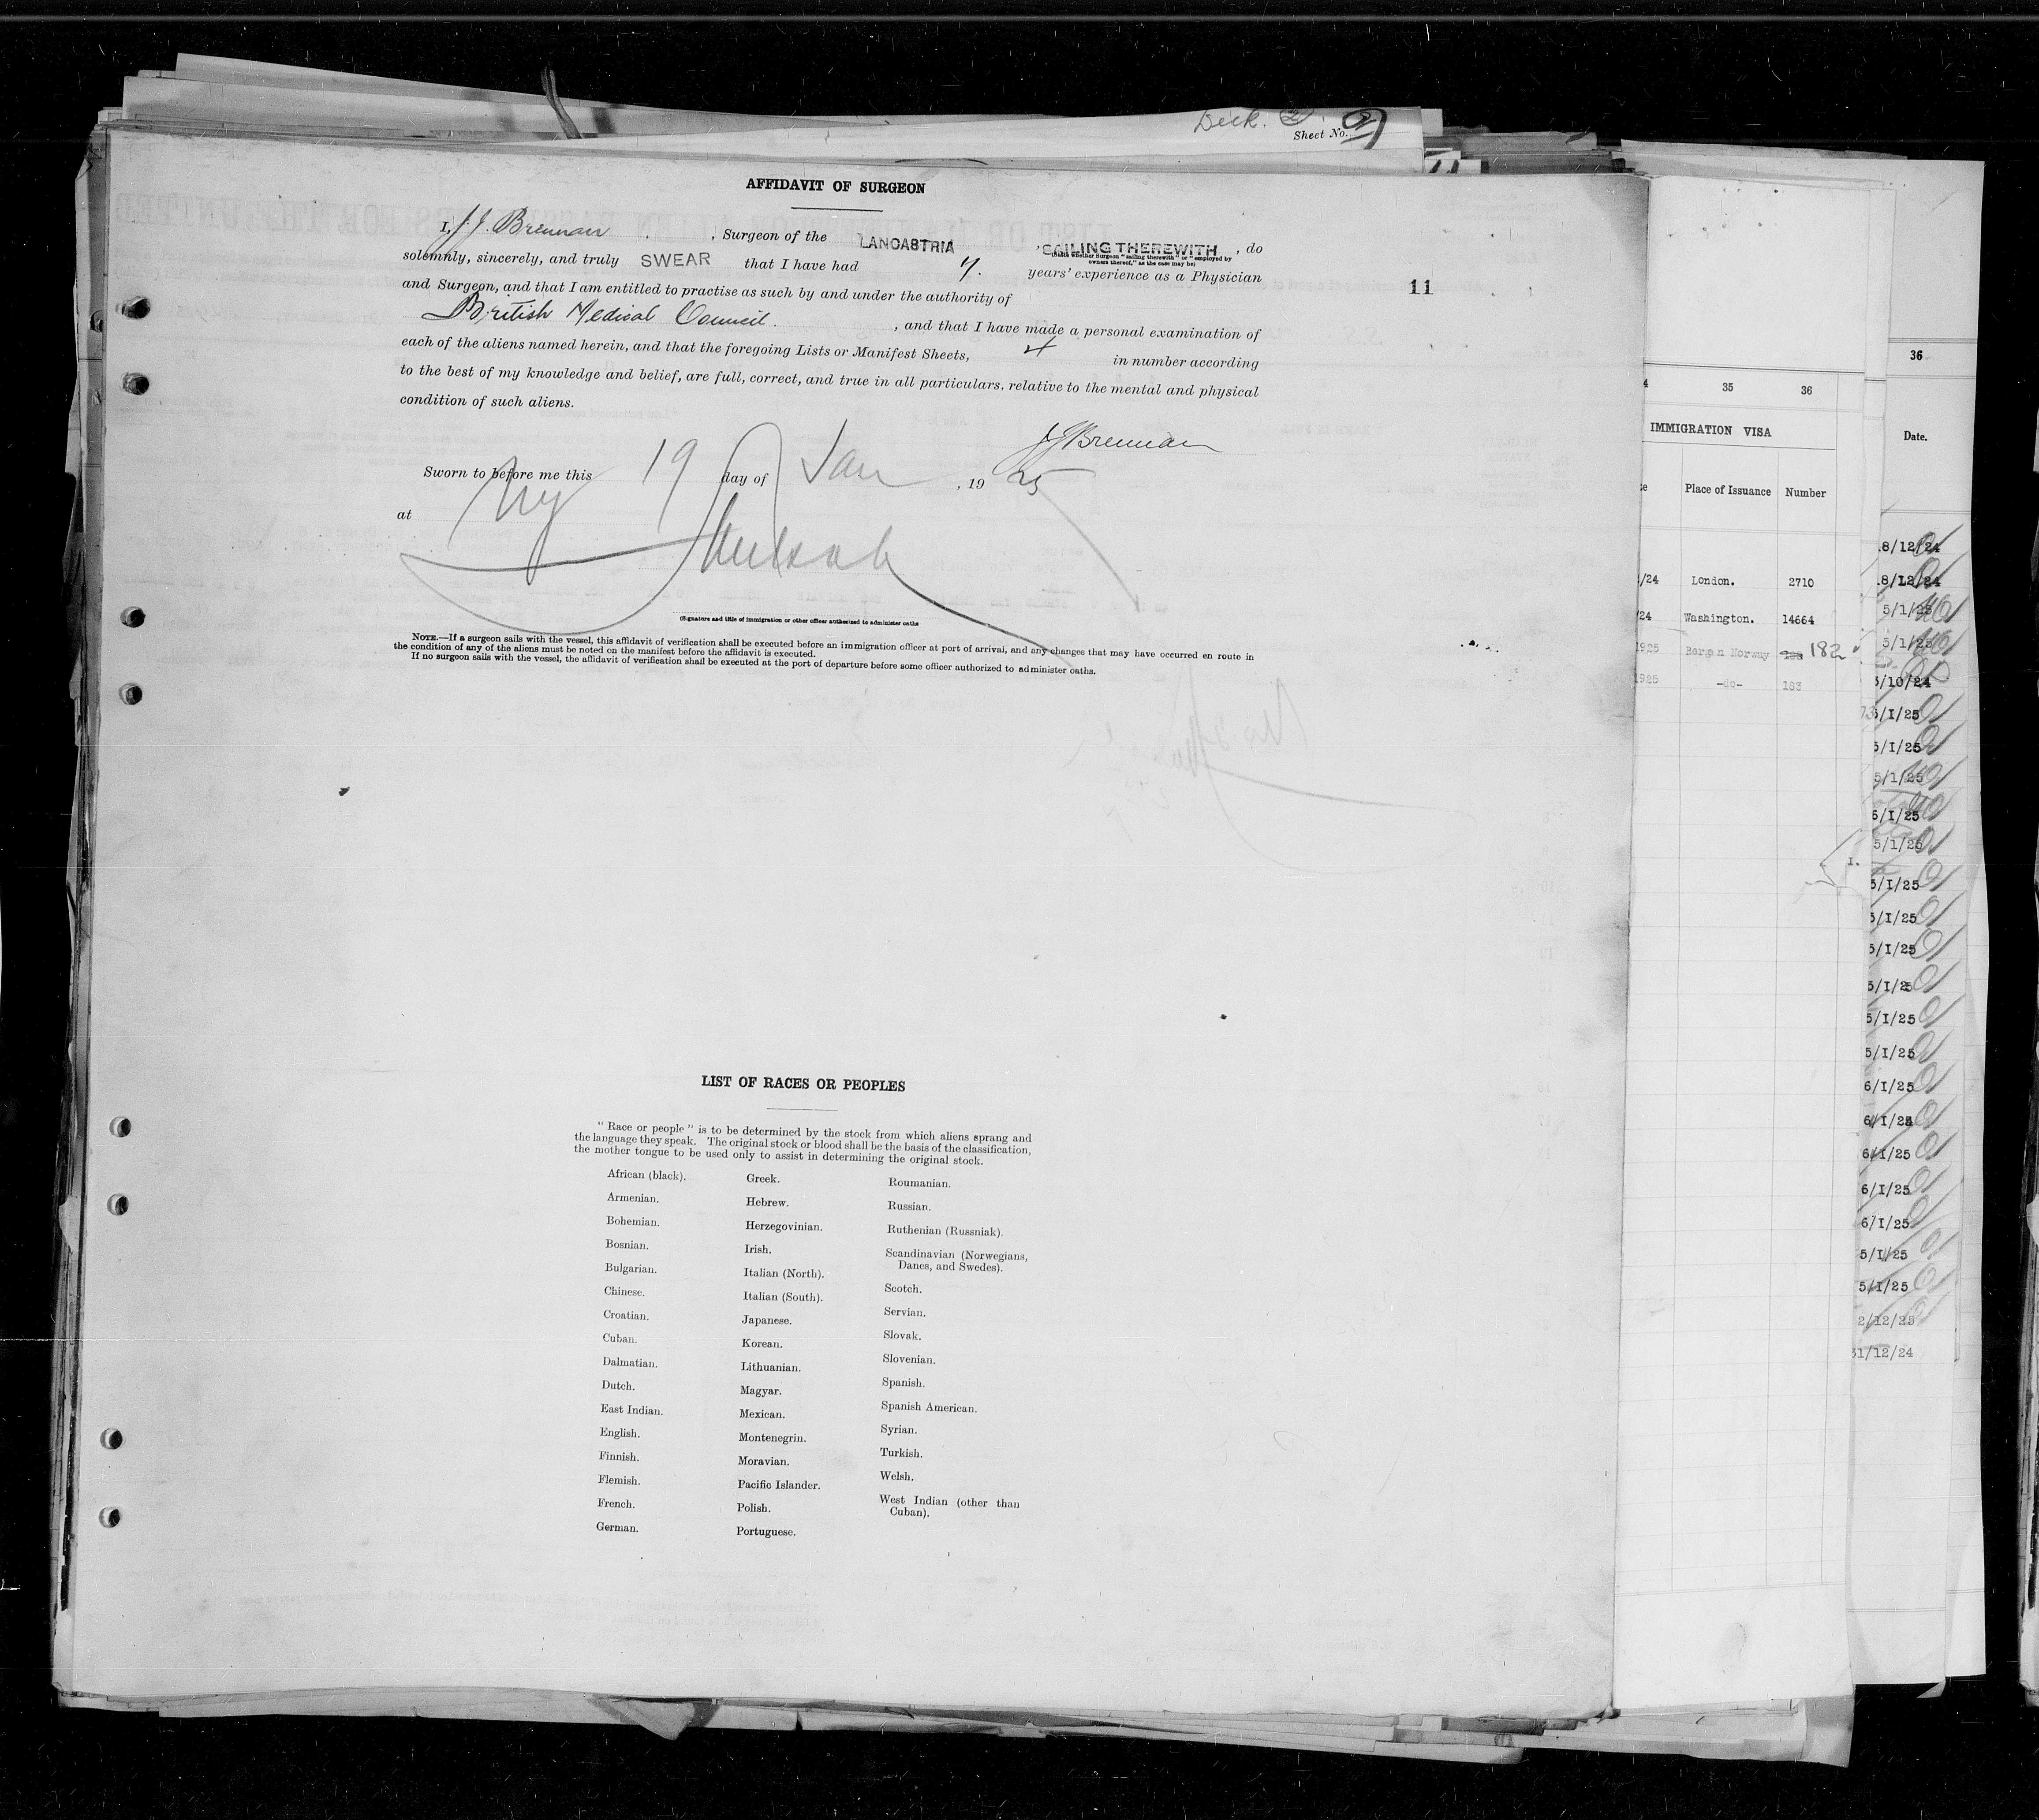 Deck. 2.
Sheet No. 2
AFFIDAVIT OF SURGEON
I, J. J. Brennan, Surgeon of the LANCASTRIA, SAILING THEREWITH, do
(State whether Surgeon "sailing therewith" or "employed by
owners thereof," as the case may be)
solemnly, sincerely, and truly SWEAR that I have had 7. years' experience as a Physician
and Surgeon, and that I am entitled to practise as such by and under the authority of
British Medical Council., and that I have made a personal examination of
each of the aliens named herein, and that the foregoing Lists or Manifest Sheets, 4 in number according
to the best of my knowledge and belief, are full, correct, and true in all particulars, relative to the mental and physical
condition of such aliens.
11
JJ Brennan
Sworn to before me this 19 day of Jan, 19 25
at NY
(Signature and title of immigration or other officer authorized to administer oaths
NOTE.—If a surgeon sails with the vessel, this affidavit of verification shall be executed before an immigration officer at port of arrival, and any changes that may have occurred en route in
the condition of any of the aliens must be noted on the manifest before the affidavit is executed.
If no surgeon sails with the vessel, the affidavit of verification shall be executed at the port of departure before some officer authorized to administer oaths.
LIST OF RACES OR PEOPLES
"Race or people" is to be determined by the stock from which aliens sprang and
the language they speak. The original stock or blood shall be the basis of the classification,
the mother tongue to be used only to assist in determining the original stock.
African (black).
Armenian.
Bohemian.
Bosnian.
Bulgarian.
Chinese.
Croatian.
Cuban.
Dalmatian.
Dutch.
East Indian.
English.
Finnish.
Flemish.
French.
German.
Greek.
Hebrew.
Herzegovinian.
Irish.
Italian (North).
Italian (South).
Japanese.
Korean.
Lithuanian.
Magyar.
Mexican.
Montenegrin.
Moravian.
Pacific Islander.
Polish.
Portuguese.
Roumanian.
Russian.
Ruthenian (Russniak).
Scandinavian (Norwegians,
Danes, and Swedes).
Scotch.
Servian.
Slovak.
Slovenian.
Spanish.
Spanish American.
Syrian.
Turkish.
Welsh.
West Indian (other than
Cuban).
35 36
IMMIGRATION VISA
Place of Issuance Number
/24 London. 2710
/24 Washington. 14664
1925 Bergen Norway 182
1925 -do- 183
36
Date.
8/12/24
8/12/24
5/1/25
5/1/25
5/10/24
5/I/25
5/I/25
5/1/25
6/I/25
5/1/25
5/I/25
5/I/25
5/I/25
5/I/25
5/I/25
5/I/25
6/I/25
6/I/25
6/I/25
6/I/25
6/I/25
5/I/25
5/I/25
2/12/25
31/12/24